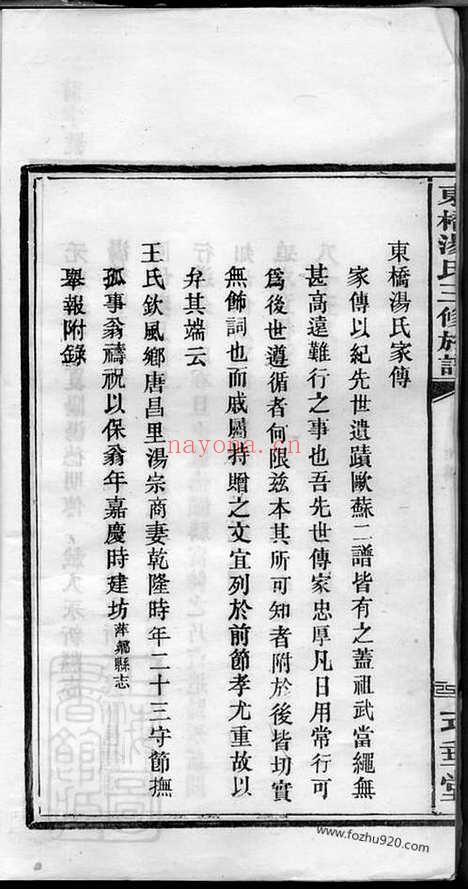 東橋湯氏三修族譜
東橋湯氏家傳
家傳以紀先世遺蹟歐蘇二譜皆有之蓋祖武當繩無
甚高遠難行之事也吾先世傳家忠厚凡日用常行可
爲後世遵循者何限茲本其所可知者附於後皆切實
無飾詞也而戚屬持贈之文宜列於前節孝尤重故以
弁其端云
王氏欽風鄉唐昌里湯宗商妻乾隆時年二十三守節撫
孤事翁禱祝以保翁年嘉慶時建坊萍鄉縣志
舉報附錄
nayona.cn
www.fozhu920.com